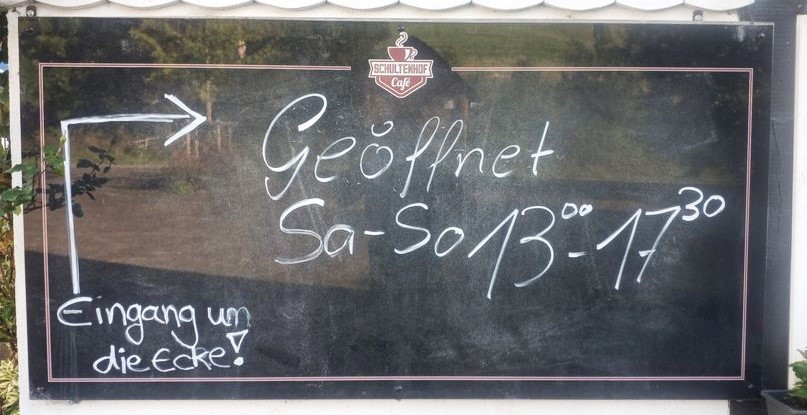 SCHULTENHOF
Café
Geöffnet
Sa-So 13⁰⁰-17³⁰
Eingang um
die Ecke!